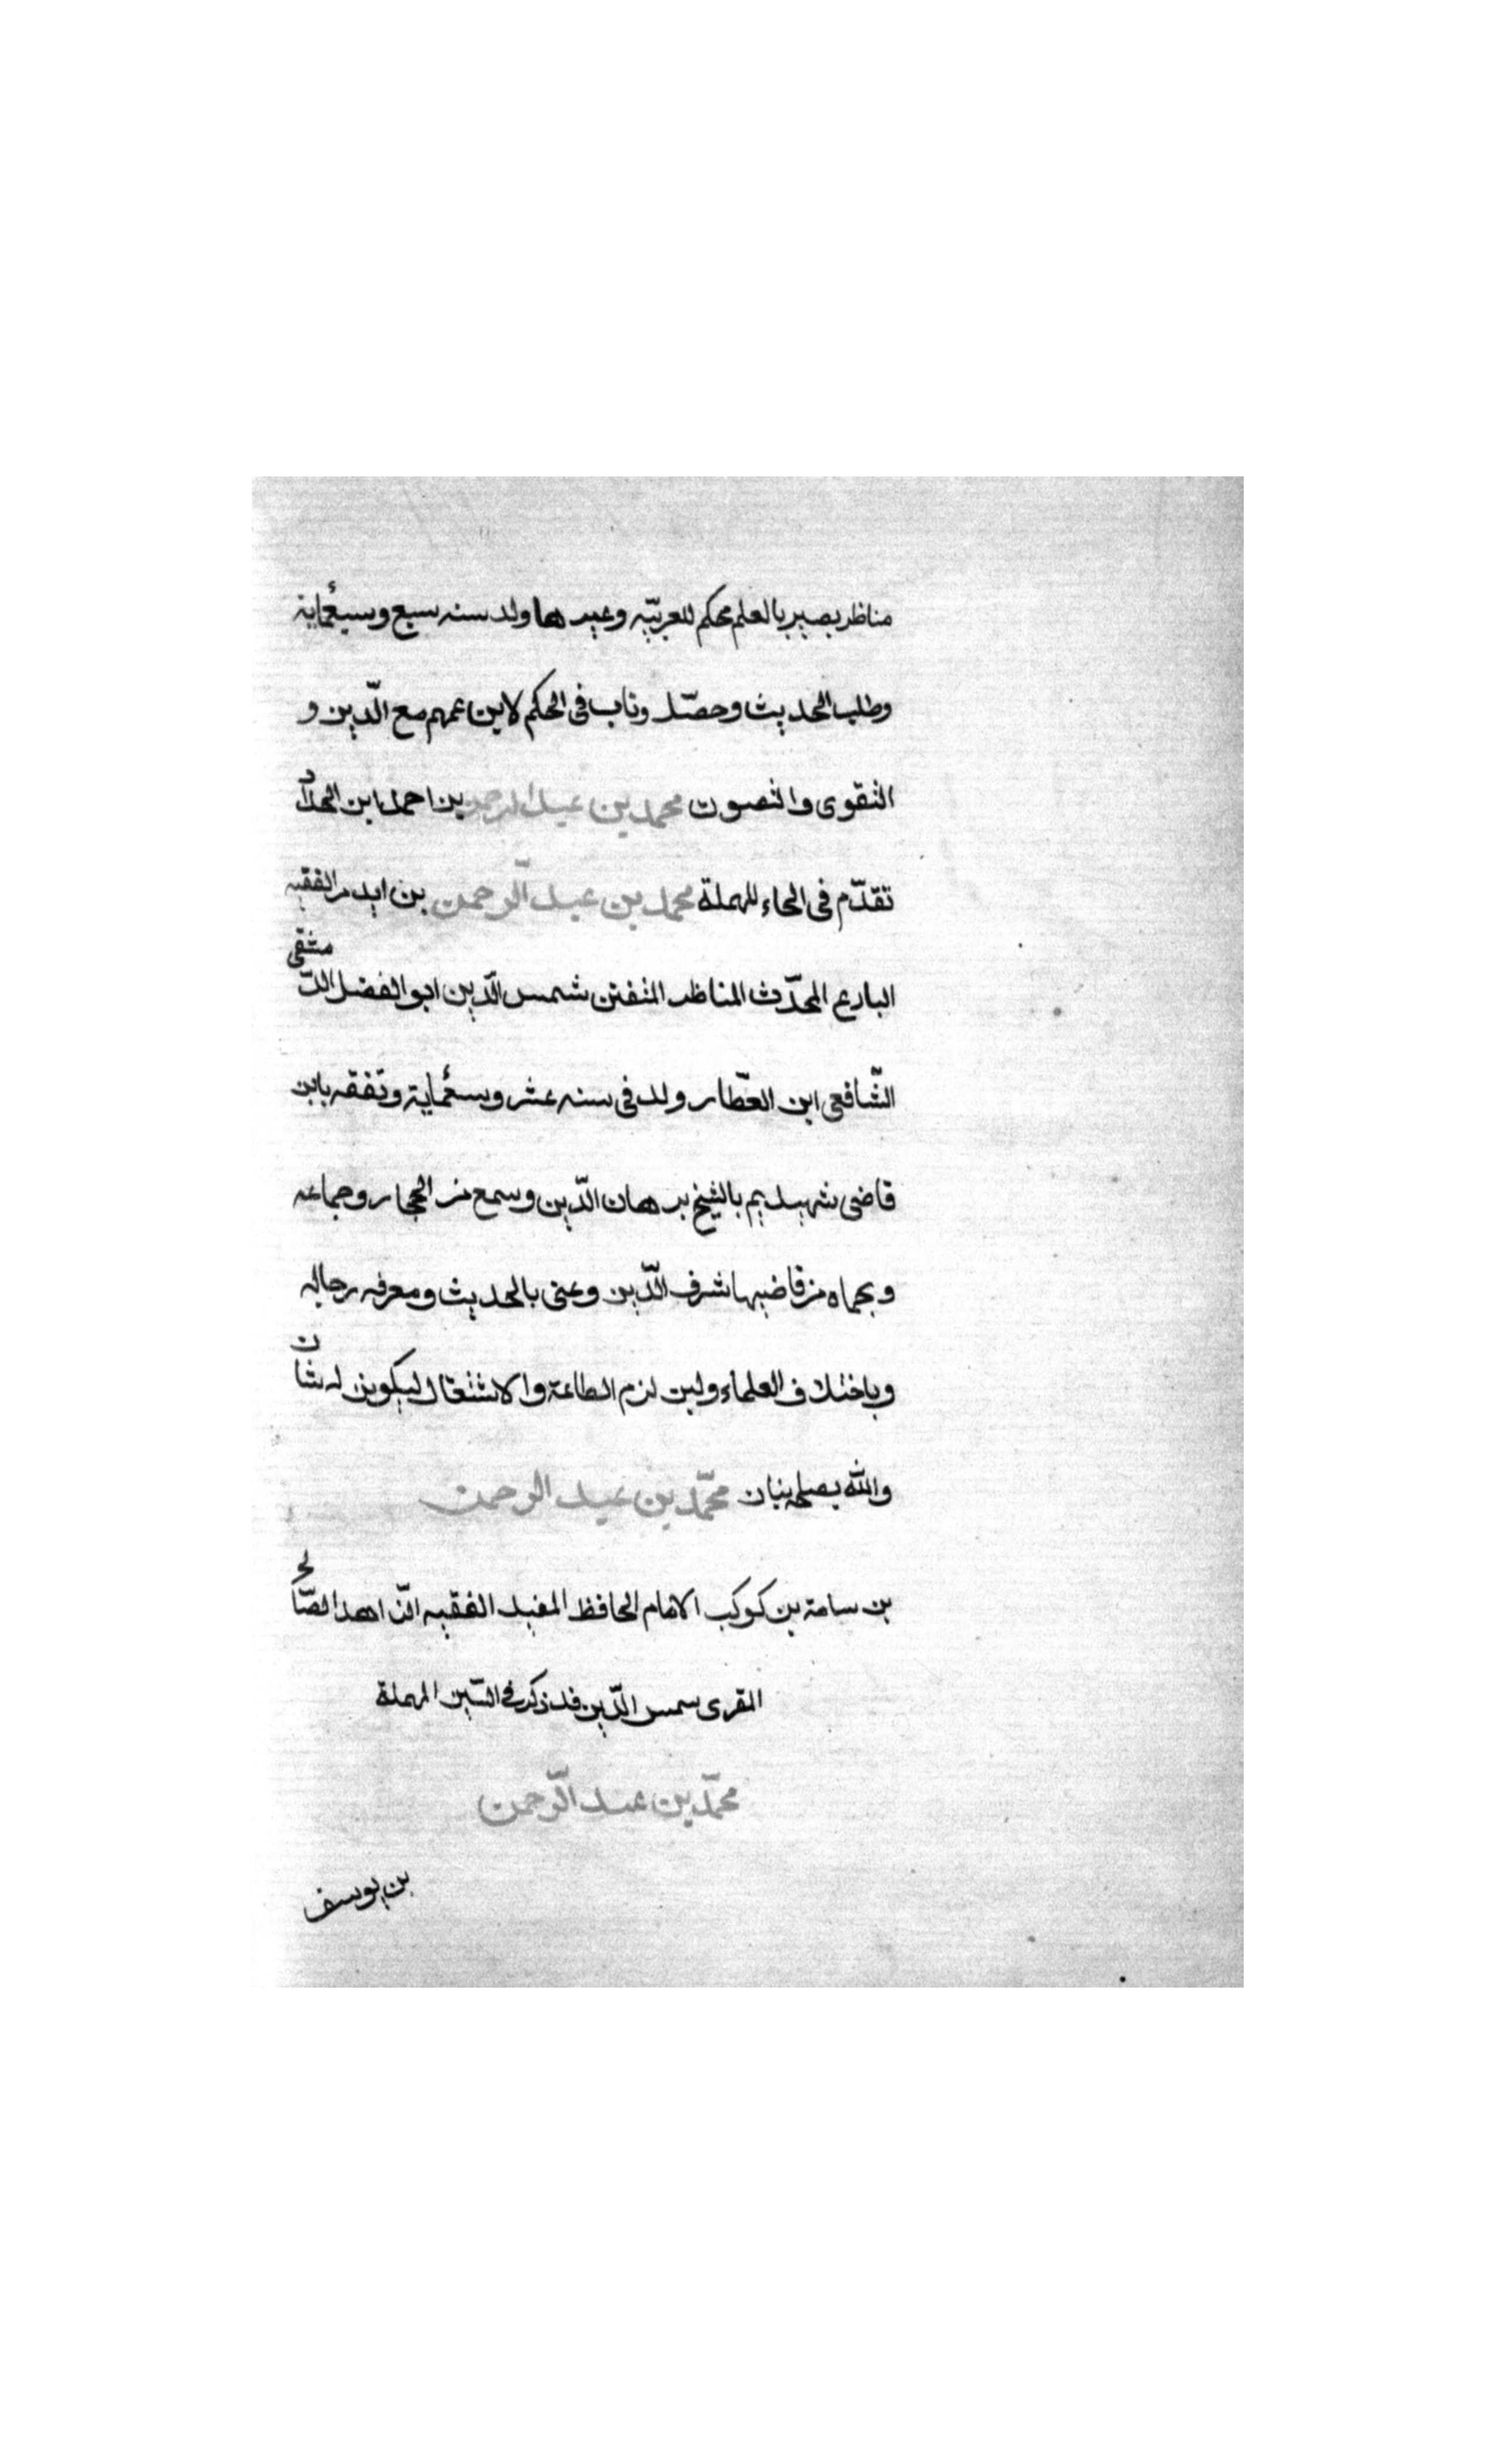 مناظر بصير بالعلم محكم للعربيّه وغيرها ولد سنه سبع وسبعمائة
وطلب الحديث وحصّل وناب فى الحكم لابن عمهم مع الدّين و
التقوى والتصون محمد بن عبد الرحمن بن احمد ابن الحداد
تقدّم فى الحاء المهملة محمد بن عبد الرّحمن بن ايدمر الفقيه
البارع المحدّث المناظر المتفنن شمس الدّين ابو الفضل الدّمشقى
الشّافعى ابن العطّار ولد فى سنه عشر وسبعمائة وتفقه بابن
قاضى شهبه ثم بالشيخ برهان الدّين وسمع من الحجار وجماعه
وبحماه من قاضيها شرف الدّين وعنى بالحديث ومعرفه رجاله
وباختلاف العلماء ولين لزم الطاعة والاشتغال ليكونن له شان
والله يصلح
محمّد بن عبد الرحمن
بن سامة بن كوكب الامام الحافظ المفيد الفقيه الصّالح
المقرى سمس الدّين قد ذكر فى السّين المهملة
محمّد بن عبد الرّحمن
بن يوسف